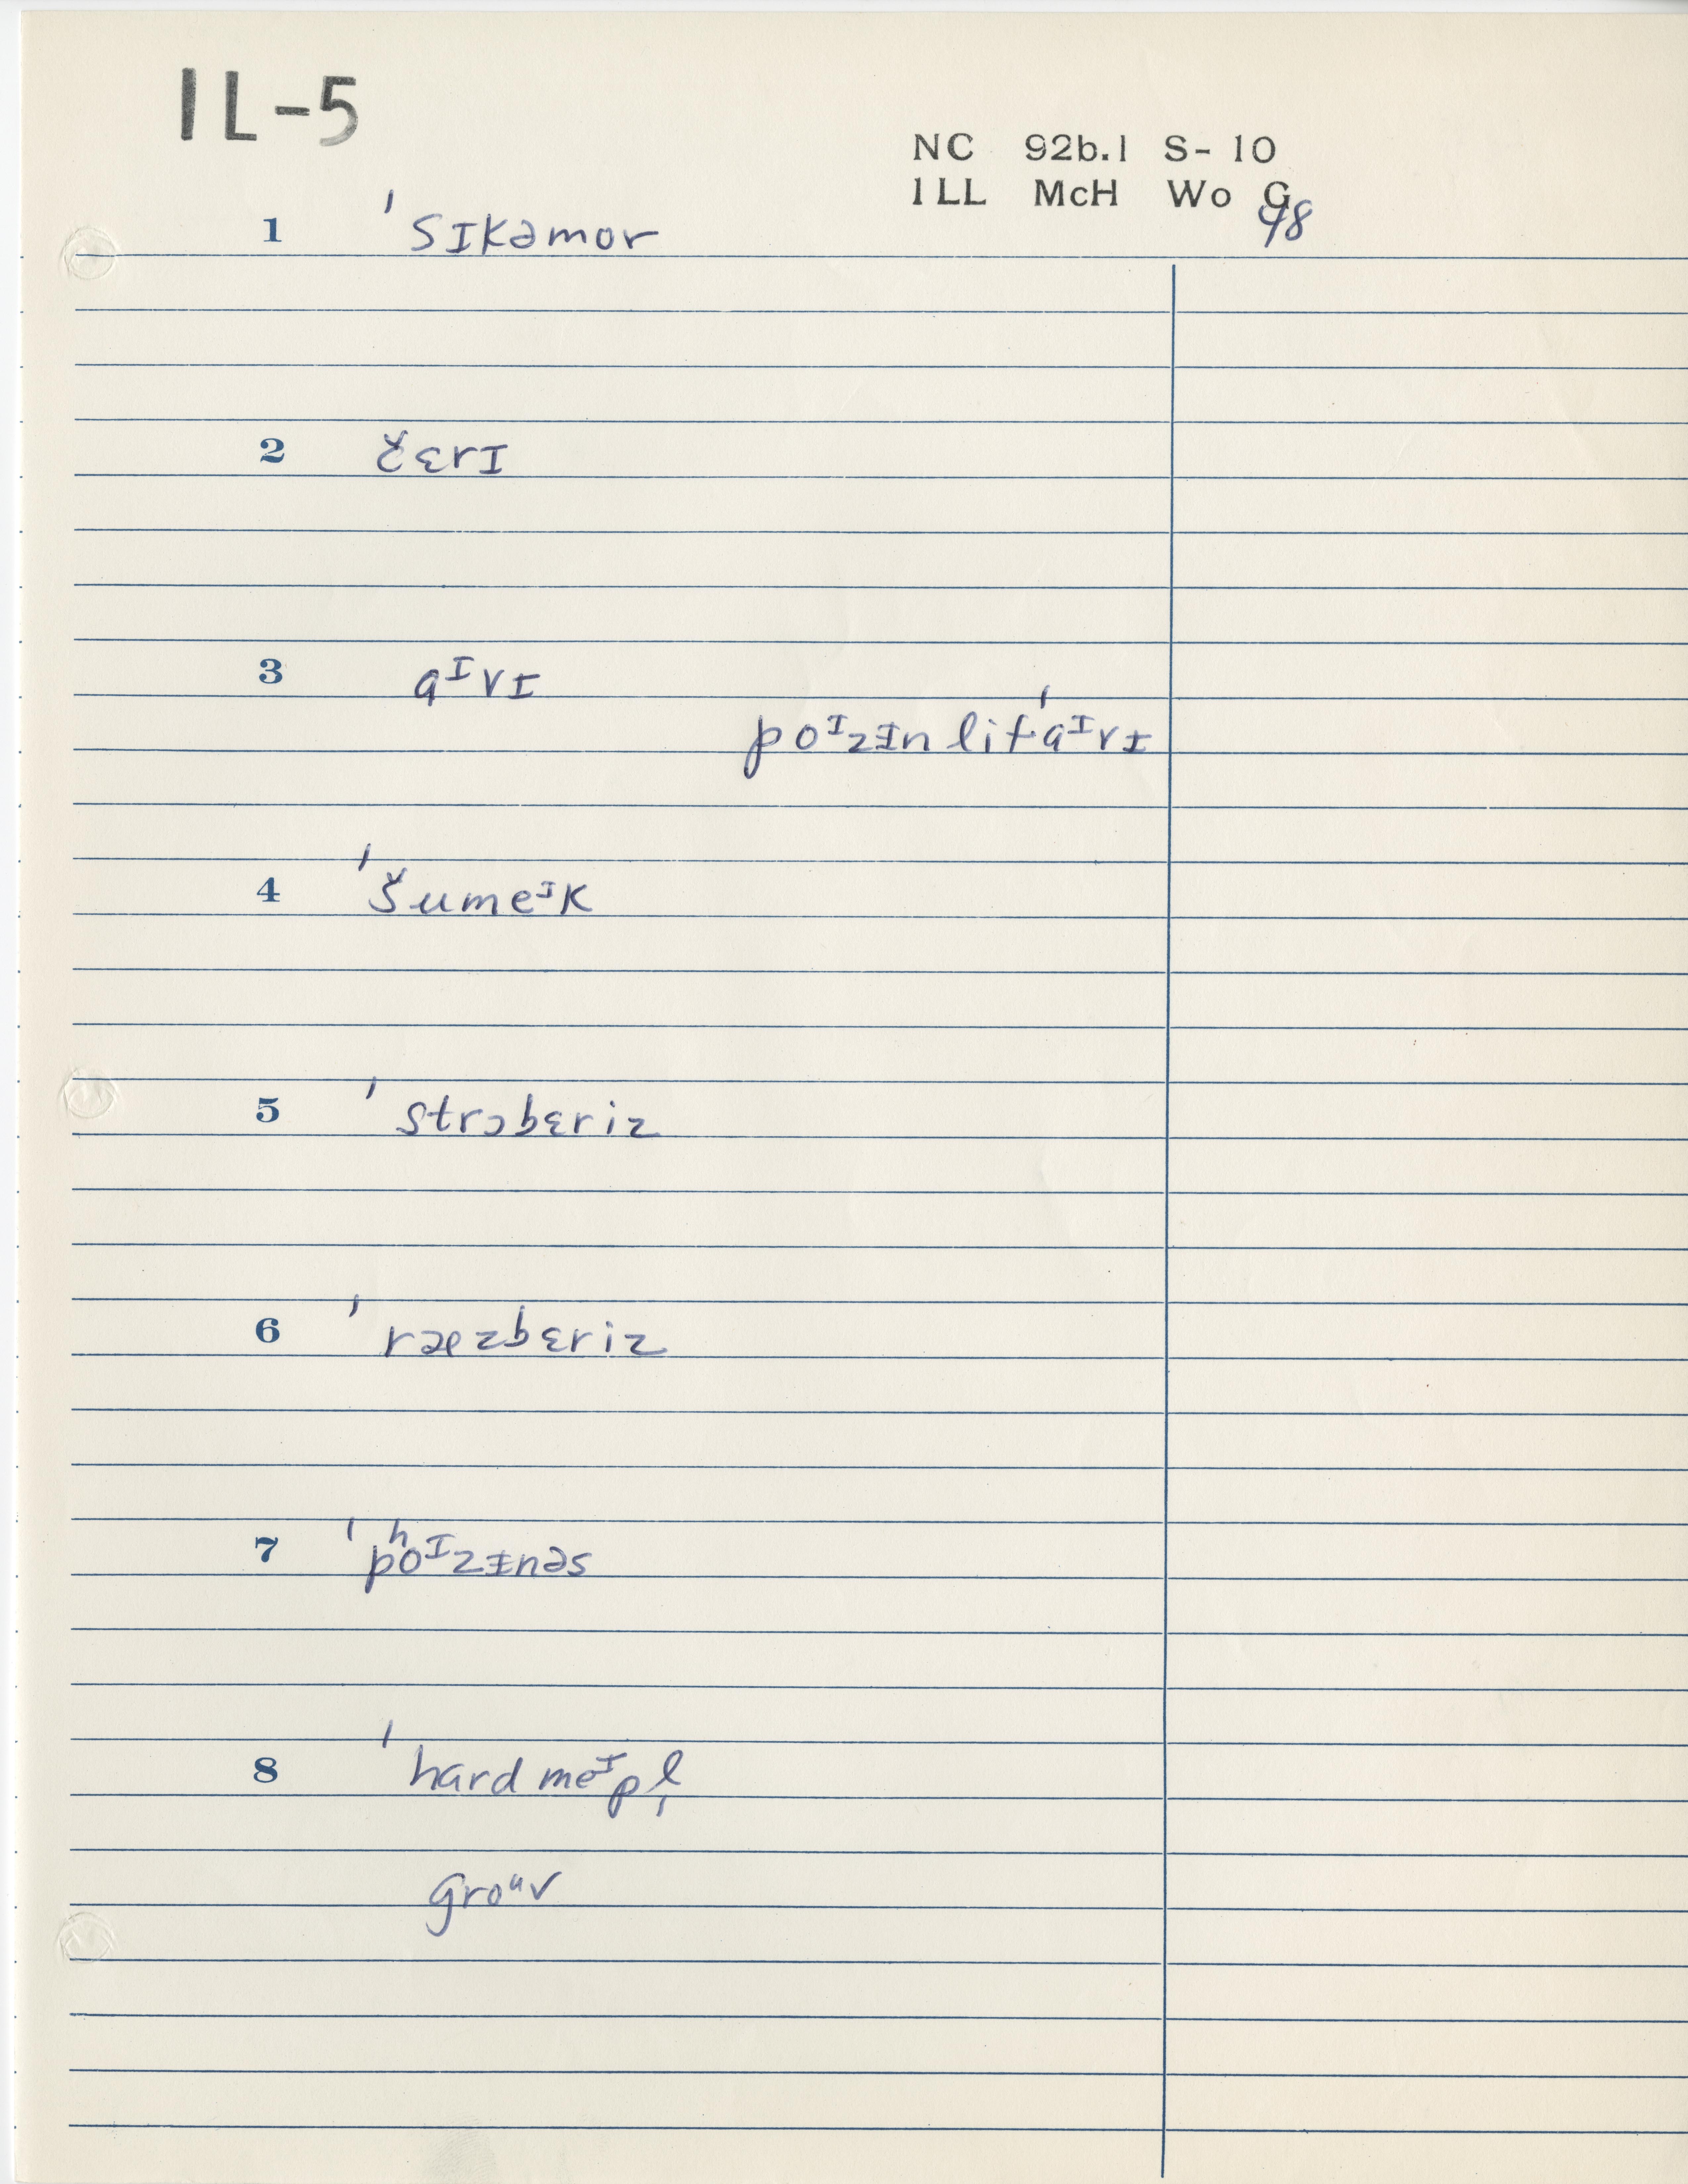 IL-5
NC 92b.1 S-10
ILL McH Wo G
98
1 ˈsɪkəmor
2 čɛrɪ
3 aᶦvɪ
poᶦzᵻn lifˈaᶦvᵻ
4 ˈšumeᶦk
5 ˈstrɔbɛriz
6 ˈræzbɛriz
7 ˈpʰoᶦzᵻnəs
8 ˈhard meᶦpl̩
groᵘv